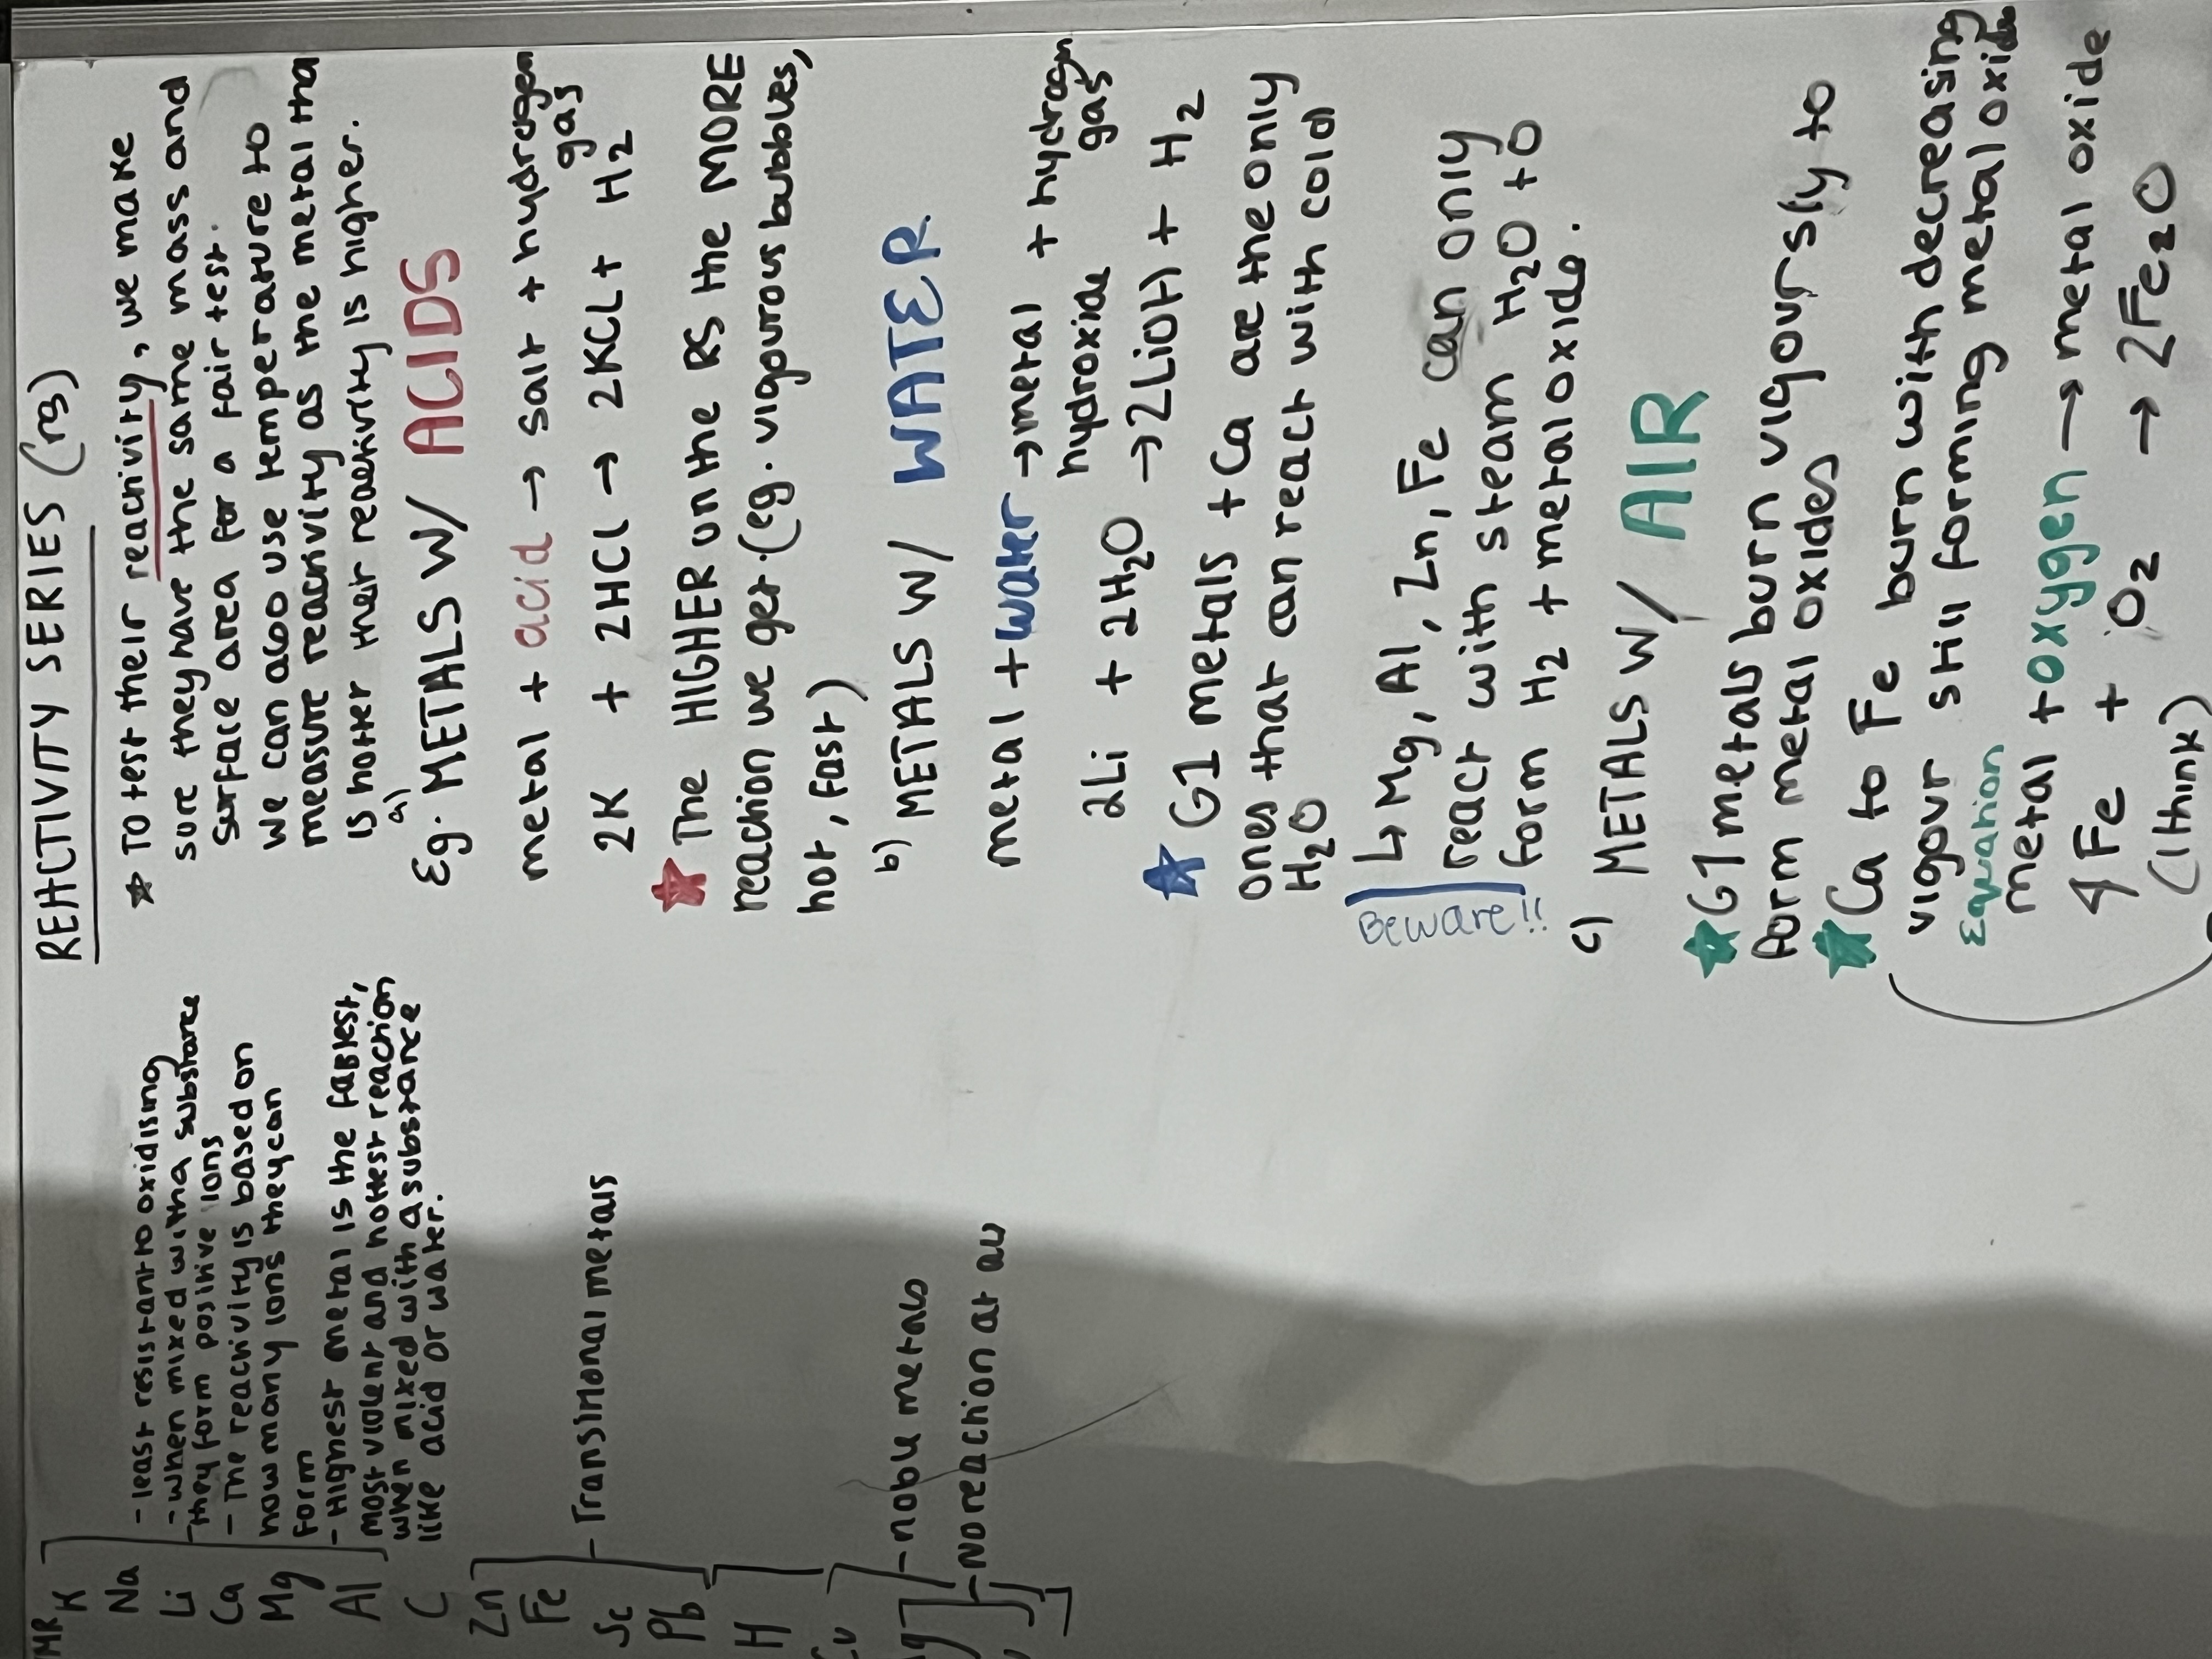 REACTIVITY SERIES (rs)
MR
K
Na
Li
Ca
Mg
Al
C
Zn
Fe
Sc
Pb
H
Cu
- least resistant to oxidising
- when mixed with a substance
they form positive ions
- The reactivity is based on
how many ions they can
form
- Highest metal is the fastest,
most violent and hottest reaction
when mixed with a substance
like acid or water.
- Transitional metals
- noble metals
- No reaction at all
* To test their reactivity, we make
sure they have the same mass and
surface area for a fair test.
we can also use temperature to
measure reactivity as the metal tha
is hotter their reactivity is higher.
a)
Eg. METALS W/ ACIDS
metal + acid → salt + hydrogen
gas
2K + 2HCl → 2KCl + H2
The HIGHER on the RS the MORE
reaction we get. (eg. vigourous bubbles,
hot, fast)
b) METALS W/ WATER
metal + water → metal + hydrogen
hydroxide gas
2Li + 2H2O → 2LiOH + H2
G1 metals + Ca are the only
ones that can react with cold
H2O
↳ Mg, Al, Zn, Fe can only
react with steam H2O to
form H2 + metal oxide.
Beware!!
c) METALS W/ AIR
G1 metals burn vigoursly to
form metal oxides
Ca to Fe burn with decreasing
vigour still forming metal oxide
Equation
metal + oxygen → metal oxide
4Fe + O2 → 2Fe2O
(I think)